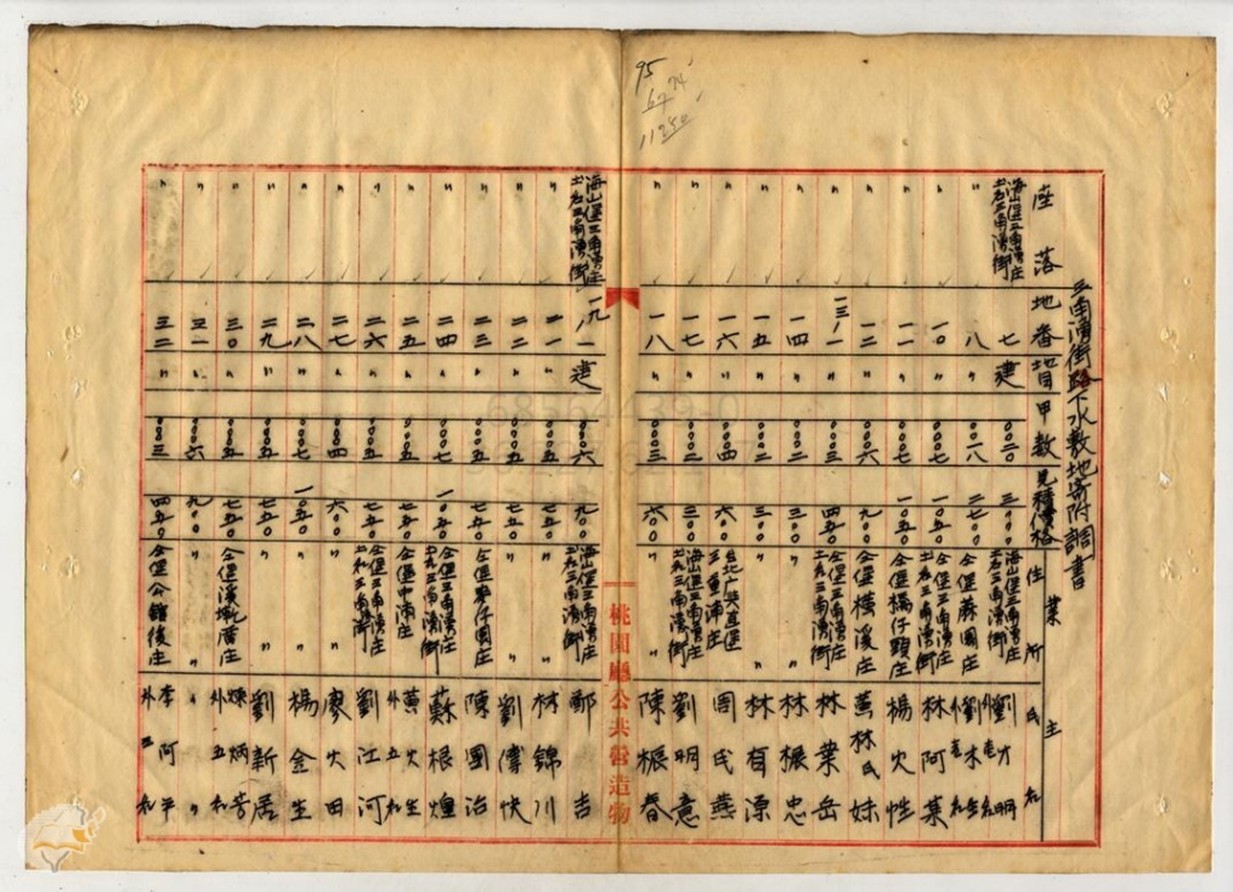 95
11250
三角湧街路下水敷地寄附調書
座落 地番 地目 甲数 見積價格 業主 住所 氏名
海山堡三角湧庄土名三角湧街 七 建 〇〇二〇 三〇〇〇 海山堡三角湧庄土名三角湧街 劉才明
〃 八 〃 〇〇一八 二七〇〇 仝堡麻園庄 劉木生
〃 一〇 〃 〇〇〇七 一〇五〇 仝堡三角湧庄土名三角湧街 林阿某
〃 一一 〃 〇〇〇七 一〇五〇 仝堡橋仔頭庄 楊火性
〃 一二 〃 〇〇〇六 九〇〇 仝堡橫溪庄 黃林氏妹
〃 一三ノ一 〃 〇〇〇三 四五〇 仝堡三角湧庄土名三角湧街 林業岳
〃 一四 〃 〇〇〇二 三〇〇 〃 林振忠
〃 一五 〃 〇〇〇二 三〇〇 〃 林有源
〃 一六 〃 〇〇〇四 六〇〇 台北广興直堡三重埔庄 周氏燕
〃 一七 〃 〇〇〇二 三〇〇 海山堡三角湧庄土名三角湧街 劉明意
〃 一八 〃 〇〇〇三 六〇〇 〃 陳振春
桃園廳公共營造物
海山堡三角湧庄土名三角湧街 一九ノ一 建 〇〇〇六 九〇〇 海山堡三角湧庄土名三角湧街 鄭吉
〃 二一 〃 〇〇〇五 七五〇 〃 林錦川
〃 二二 〃 〇〇〇五 七五〇 〃 劉傳快
〃 二三 〃 〇〇〇五 七五〇 仝堡麥仔園庄 陳圖治
〃 二四 〃 〇〇〇七 一〇五〇 仝堡三角湧庄土名三角湧街 蘇根煌
〃 二五 〃 〇〇〇五 七五〇 仝堡中埔庄 黃火生 外五名
〃 二六 〃 〇〇〇五 七五〇 仝堡三角湧庄土名三角湧街 劉江河
〃 二七 〃 〇〇〇四 六〇〇 〃 廖火田
〃 二八 〃 〇〇〇七 一〇五〇 〃 楊金生
〃 二九 〃 〇〇〇五 七五〇 〃 劉新居
〃 三〇 〃 〇〇〇五 七五〇 仝堡溪墘厝庄 陳炳芳 外五名
〃 三一 〃 〇〇〇六 九〇〇 〃 〃
〃 三二 〃 〇〇〇三 四五〇 仝堡公館後庄 李阿平 外三名